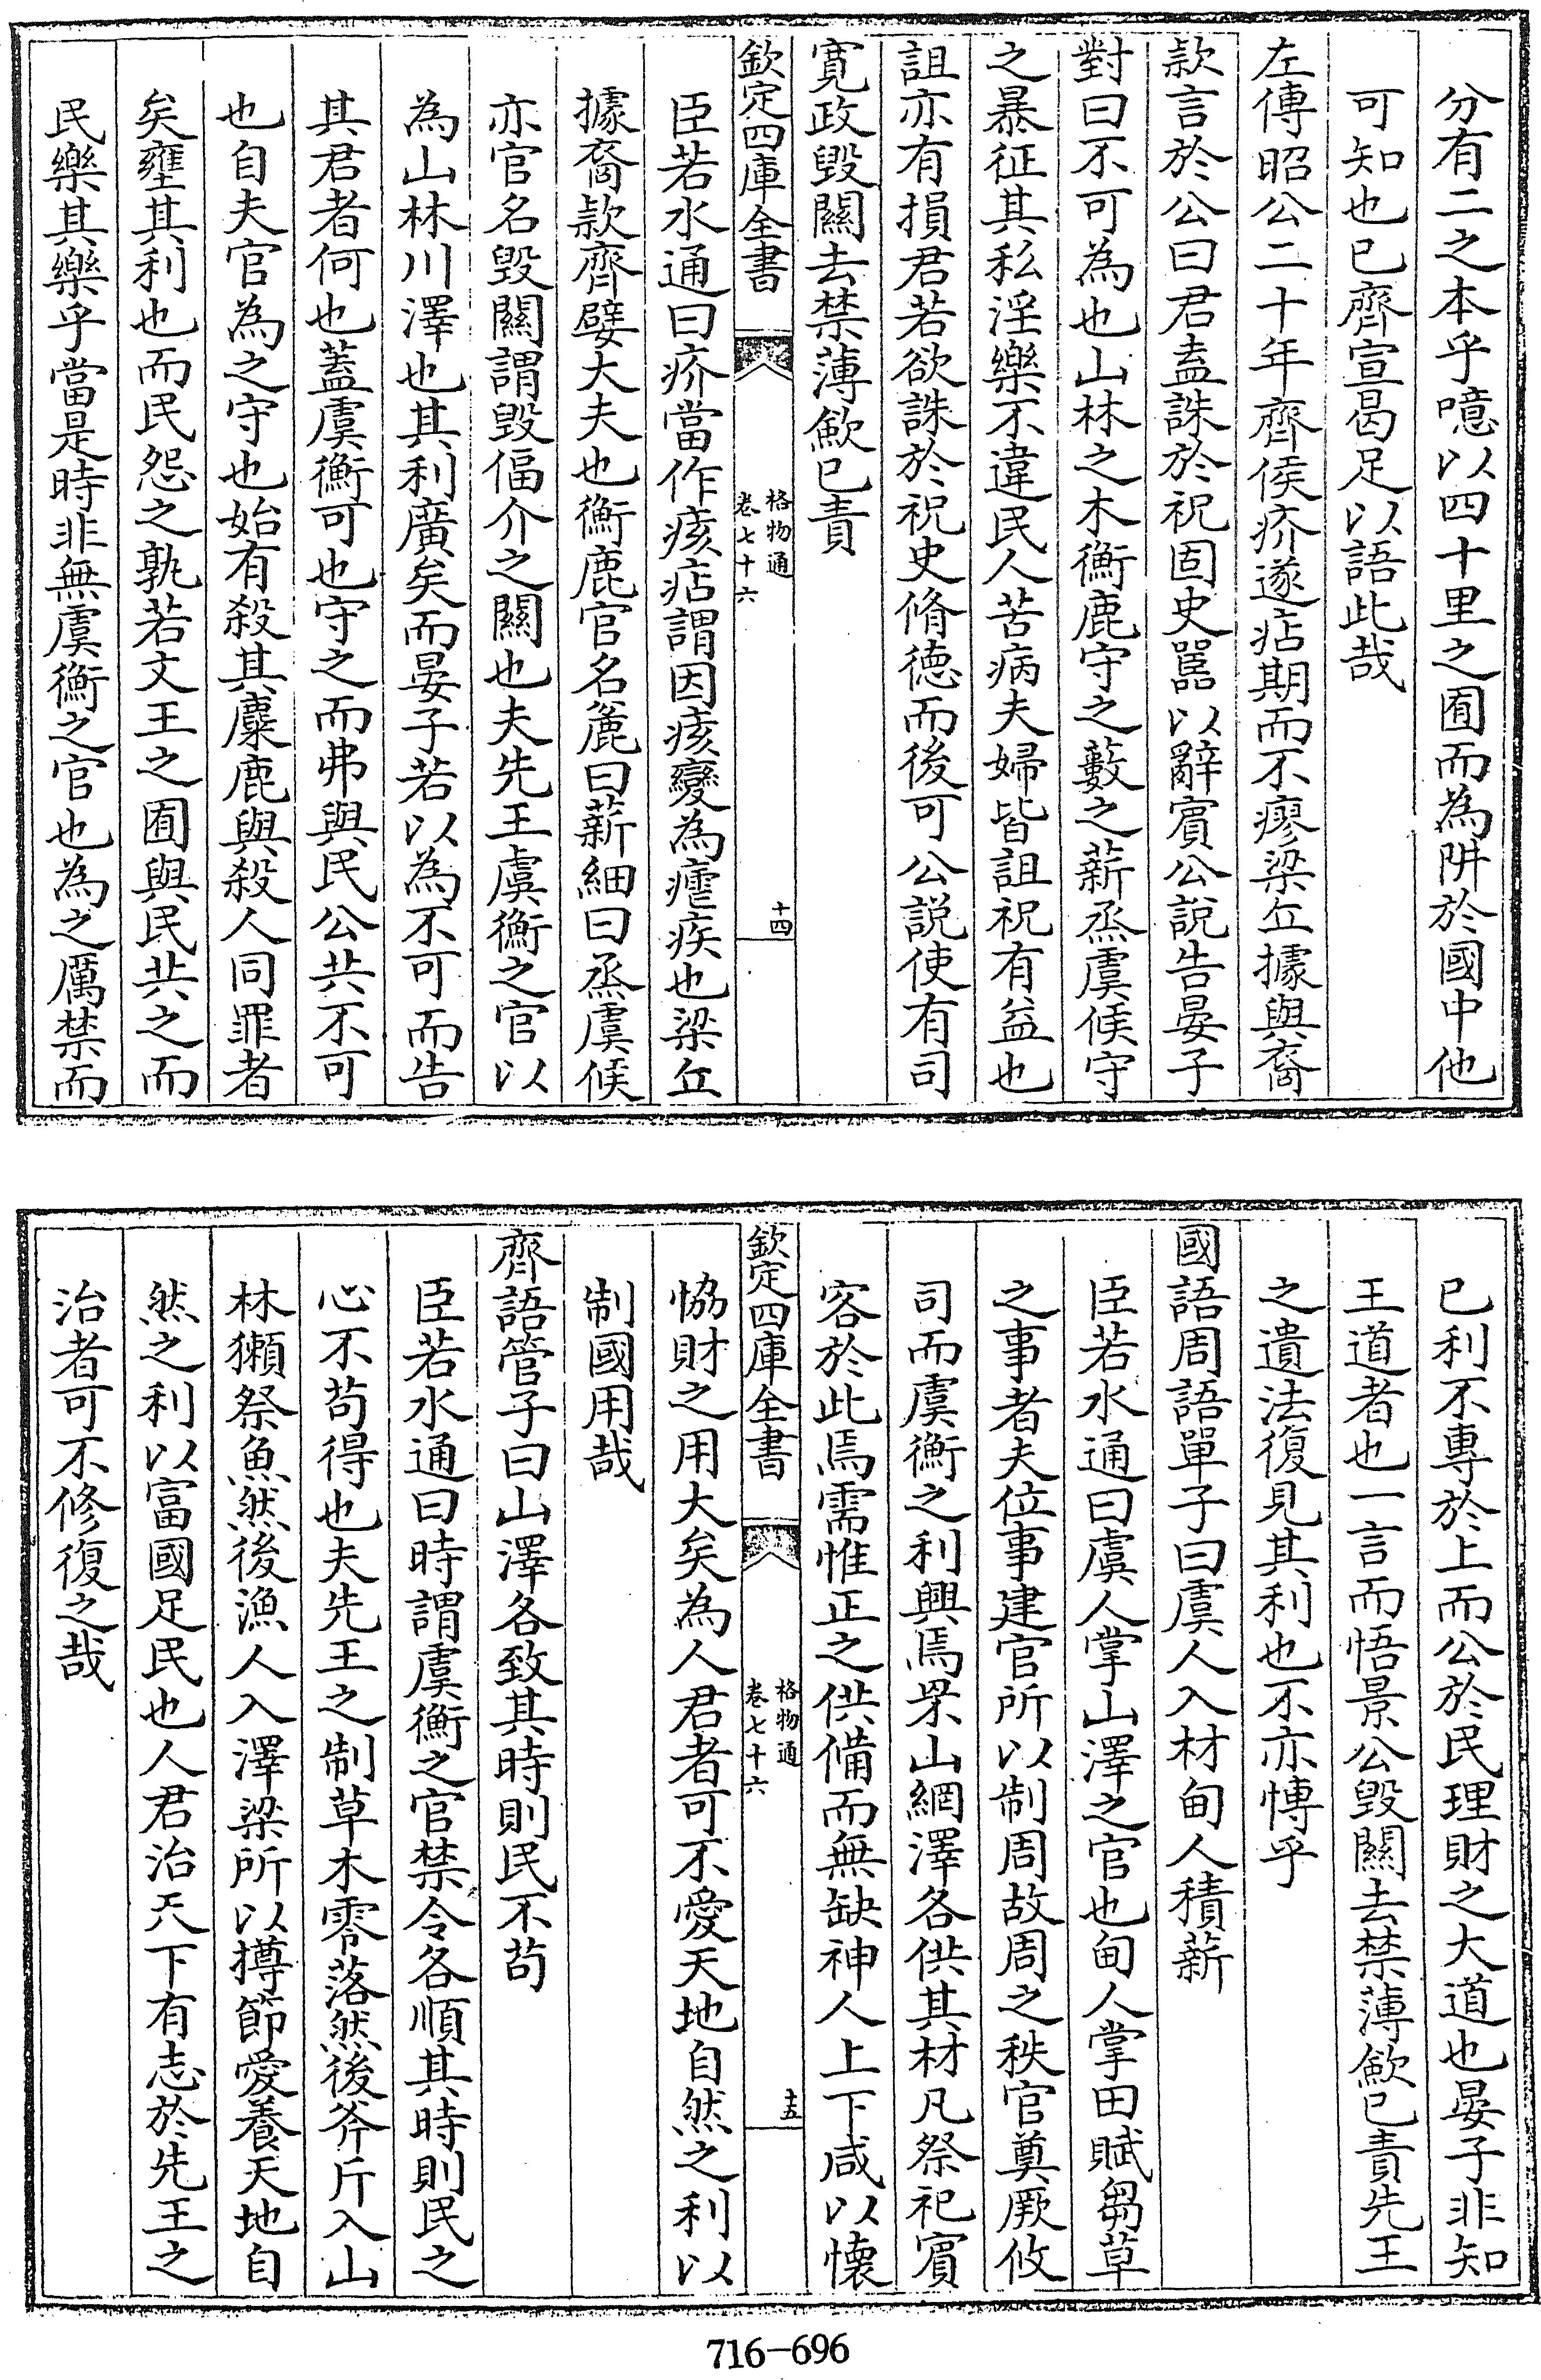 分有二之本乎噫以四十里之囿而為阱於國中他
可知也已齊宣曷足以語此哉
左傳昭公二十年齊侯疥遂痁期而不瘳梁丘據與裔
款言於公曰君盍誅於祝固史嚚以辭賓公說告晏子
對曰不可為也山林之木衡鹿守之藪之薪烝虞候守
之暴征其私淫樂不違民人苦病夫婦皆詛祝有益也
詛亦有損君若欲誅於祝史脩德而後可公説使有司
寛政毀關去禁薄歛已責
欽定四庫全書
格物通
卷七十六
十四
臣若水通曰疥當作痎痁謂因痎變為瘧疾也梁丘
據裔款齊嬖大夫也衡鹿官名麄曰薪細曰烝虞候
亦官名毀關謂毀偪介之關也夫先王虞衡之官以
為山林川澤也其利廣矣而晏子若以為不可而告
其君者何也蓋虞衡可也守之而弗與民公共不可
也自夫官為之守也始有殺其麋鹿與殺人同罪者
矣壅其利也而民怨之孰若文王之囿與民共之而
民樂其樂乎當是時非無虞衡之官也為之厲禁而
已利不專於上而公於民理財之大道也晏子非知
王道者也一言而悟景公毀關去禁薄歛已責先王
之遺法復見其利也不亦慱乎
國語周語單子曰虞人入材甸人積薪
臣若水通曰虞人掌山澤之官也甸人掌田賦芻草
之事者夫位事建官所以制周故周之秩官奠厥攸
司而虞衡之利興焉罘山網澤各供其材凡祭祀賓
客於此焉需惟正之供備而無缺神人上下咸以懷
欽定四庫全書
格物通
卷七十六
十五
恊財之用大矣為人君者可不愛天地自然之利以
制國用哉
齊語管子曰山澤各致其時則民不苟
臣若水通曰時謂虞衡之官禁令各順其時則民之
心不苟得也夫先王之制草木零落然後斧斤入山
林獺祭魚然後漁人入澤梁所以撙節愛養天地自
然之利以富國足民也人君治天下有志於先王之
治者可不修復之哉
716-696